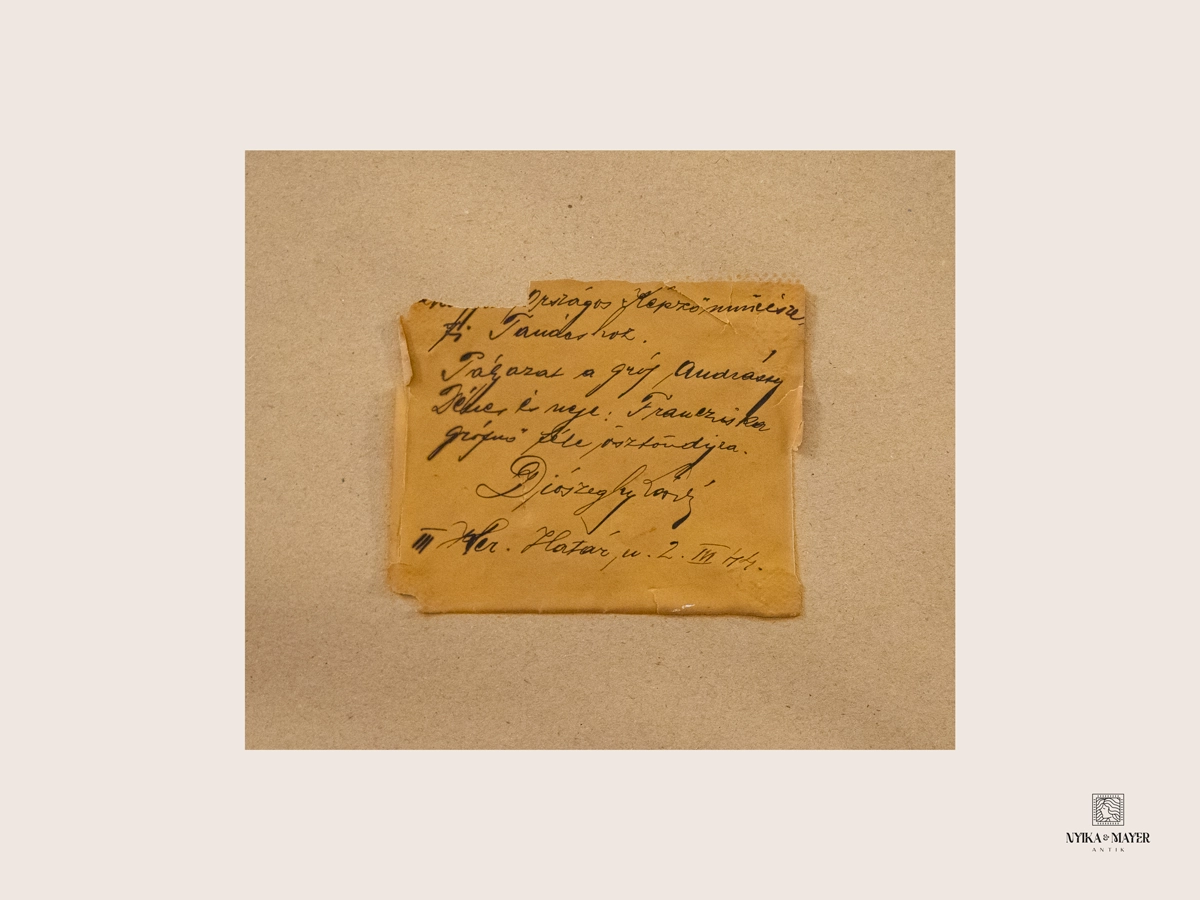 Országos Képzőművésze
ti Tanácsnak.
Pályázat a gróf Andrássy
Dénes és neje: Francziska
grófnő féle ösztöndíjra.
Diószeghy László
III Ker. Határ u. 2. III 44.
NYIKA & MAYER
ANTIK